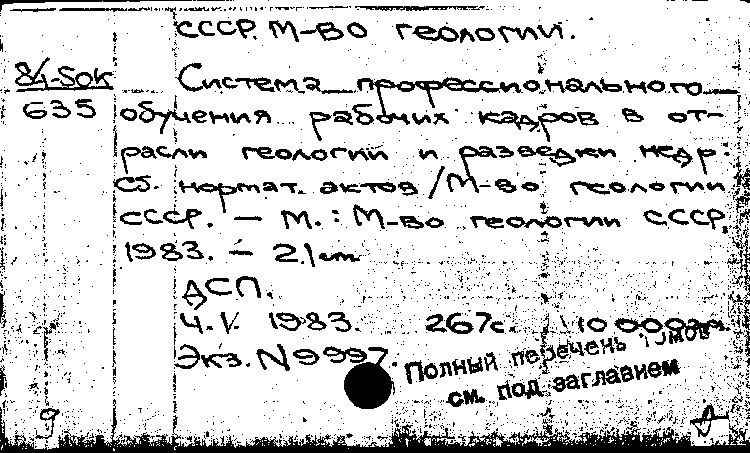 СССР. М-во геологии.
84-5ок
635
Система профессионального
обучения рабочих кадров в от-
расли геологии и разведки недр:
Сб. нормат. актов / М-во геологии
СССР. — М. : М-во геологии СССР,
1983. — 21 cm
ДСП.
Ч. 1. 1983. 267с.
Экз. N 9997.
Полный перечень томов
см. под заглавием
9